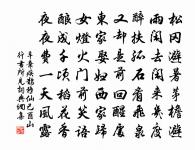 松冈避暑茅檐避
雨闲去闲来幾度
醉扶孤石看飛泉
又卻是前回醒處
東家娶婦西家歸
女燈火門前笑語
釀成千頃稻花香
夜夜費一天風露
辛棄疾鵲橋仙己酉山
行書所見詞典網集